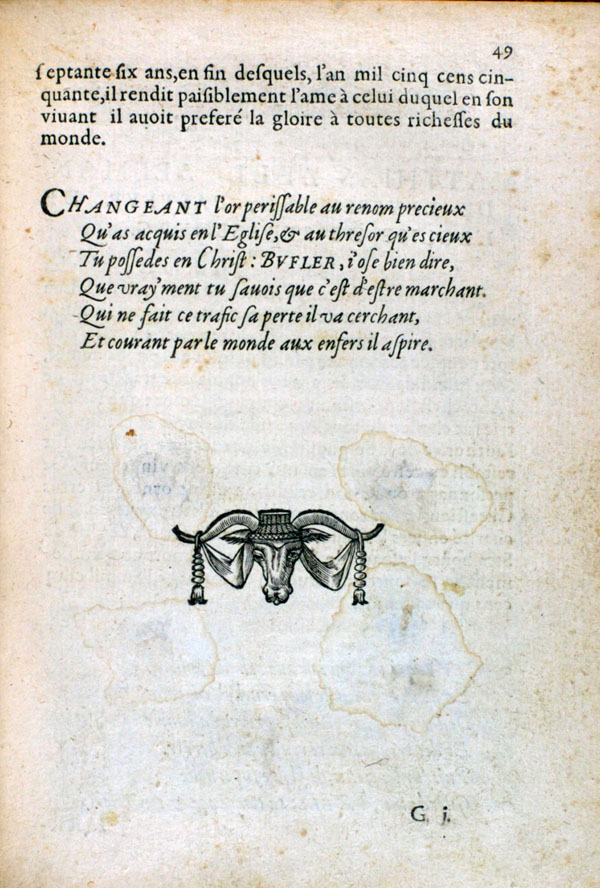 49
ſeptante ſix ans, en fin deſquels, l'an mil cinq cens cin-
quante, il rendit paiſiblement l'ame à celui duquel en ſon
viuant il auoit preferé la gloire à toutes richeſſes du
monde.
CHANGEANT l'or periſſable au renom precieux
Qu'as acquis en l'Egliſe, & au threſor qu'es cieux
Tu poſſedes en Chriſt: BVFLER, i'oſe bien dire,
Que vray'ment tu ſauois que c'eſt d'eſtre marchant.
Qui ne fait ce trafic ſa perte il va cerchant,
Et courant par le monde aux enfers il aſpire.
G j.